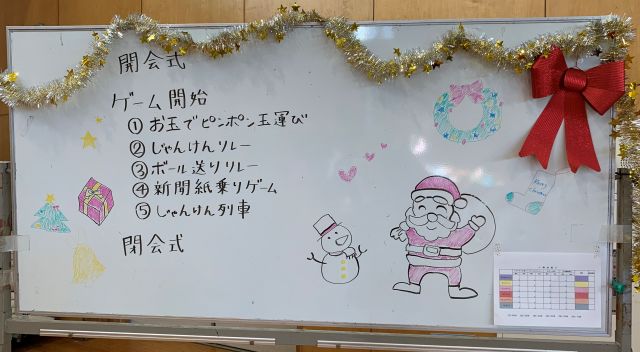 開会式
ゲーム開始
① お玉でピンポン玉運び
② じゃんけんリレー
③ ボール送りリレー
④ 新聞紙乗りゲーム
⑤ じゃんけん列車
閉会式
Merry